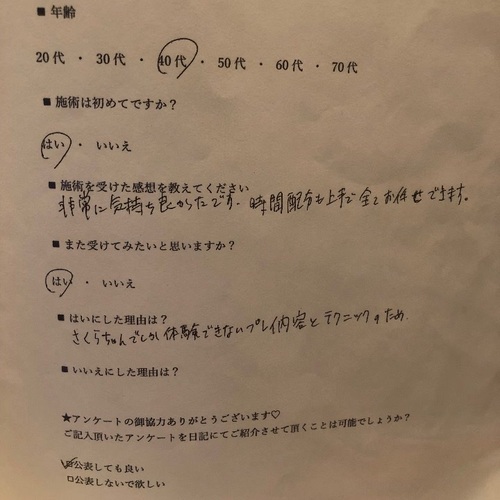 ■ 年齢
20代 ・ 30代 ・ 40代 ・ 50代 ・ 60代 ・ 70代
■ 施術は初めてですか？
はい ・ いいえ
■ 施術を受けた感想を教えてください
非常に気持ち良かったです。時間配分も上手で全てお任せできます。
■ また受けてみたいと思いますか？
はい ・ いいえ
■ はいにした理由は？
さくらちゃんでしか体験できないプレイ内容とテクニックのため
■ いいえにした理由は？
★アンケートの御協力ありがとうございます♡
ご記入頂いたアンケートを日記にてご紹介させて頂くことは可能でしょうか？
☑公表しても良い
□公表しないで欲しい